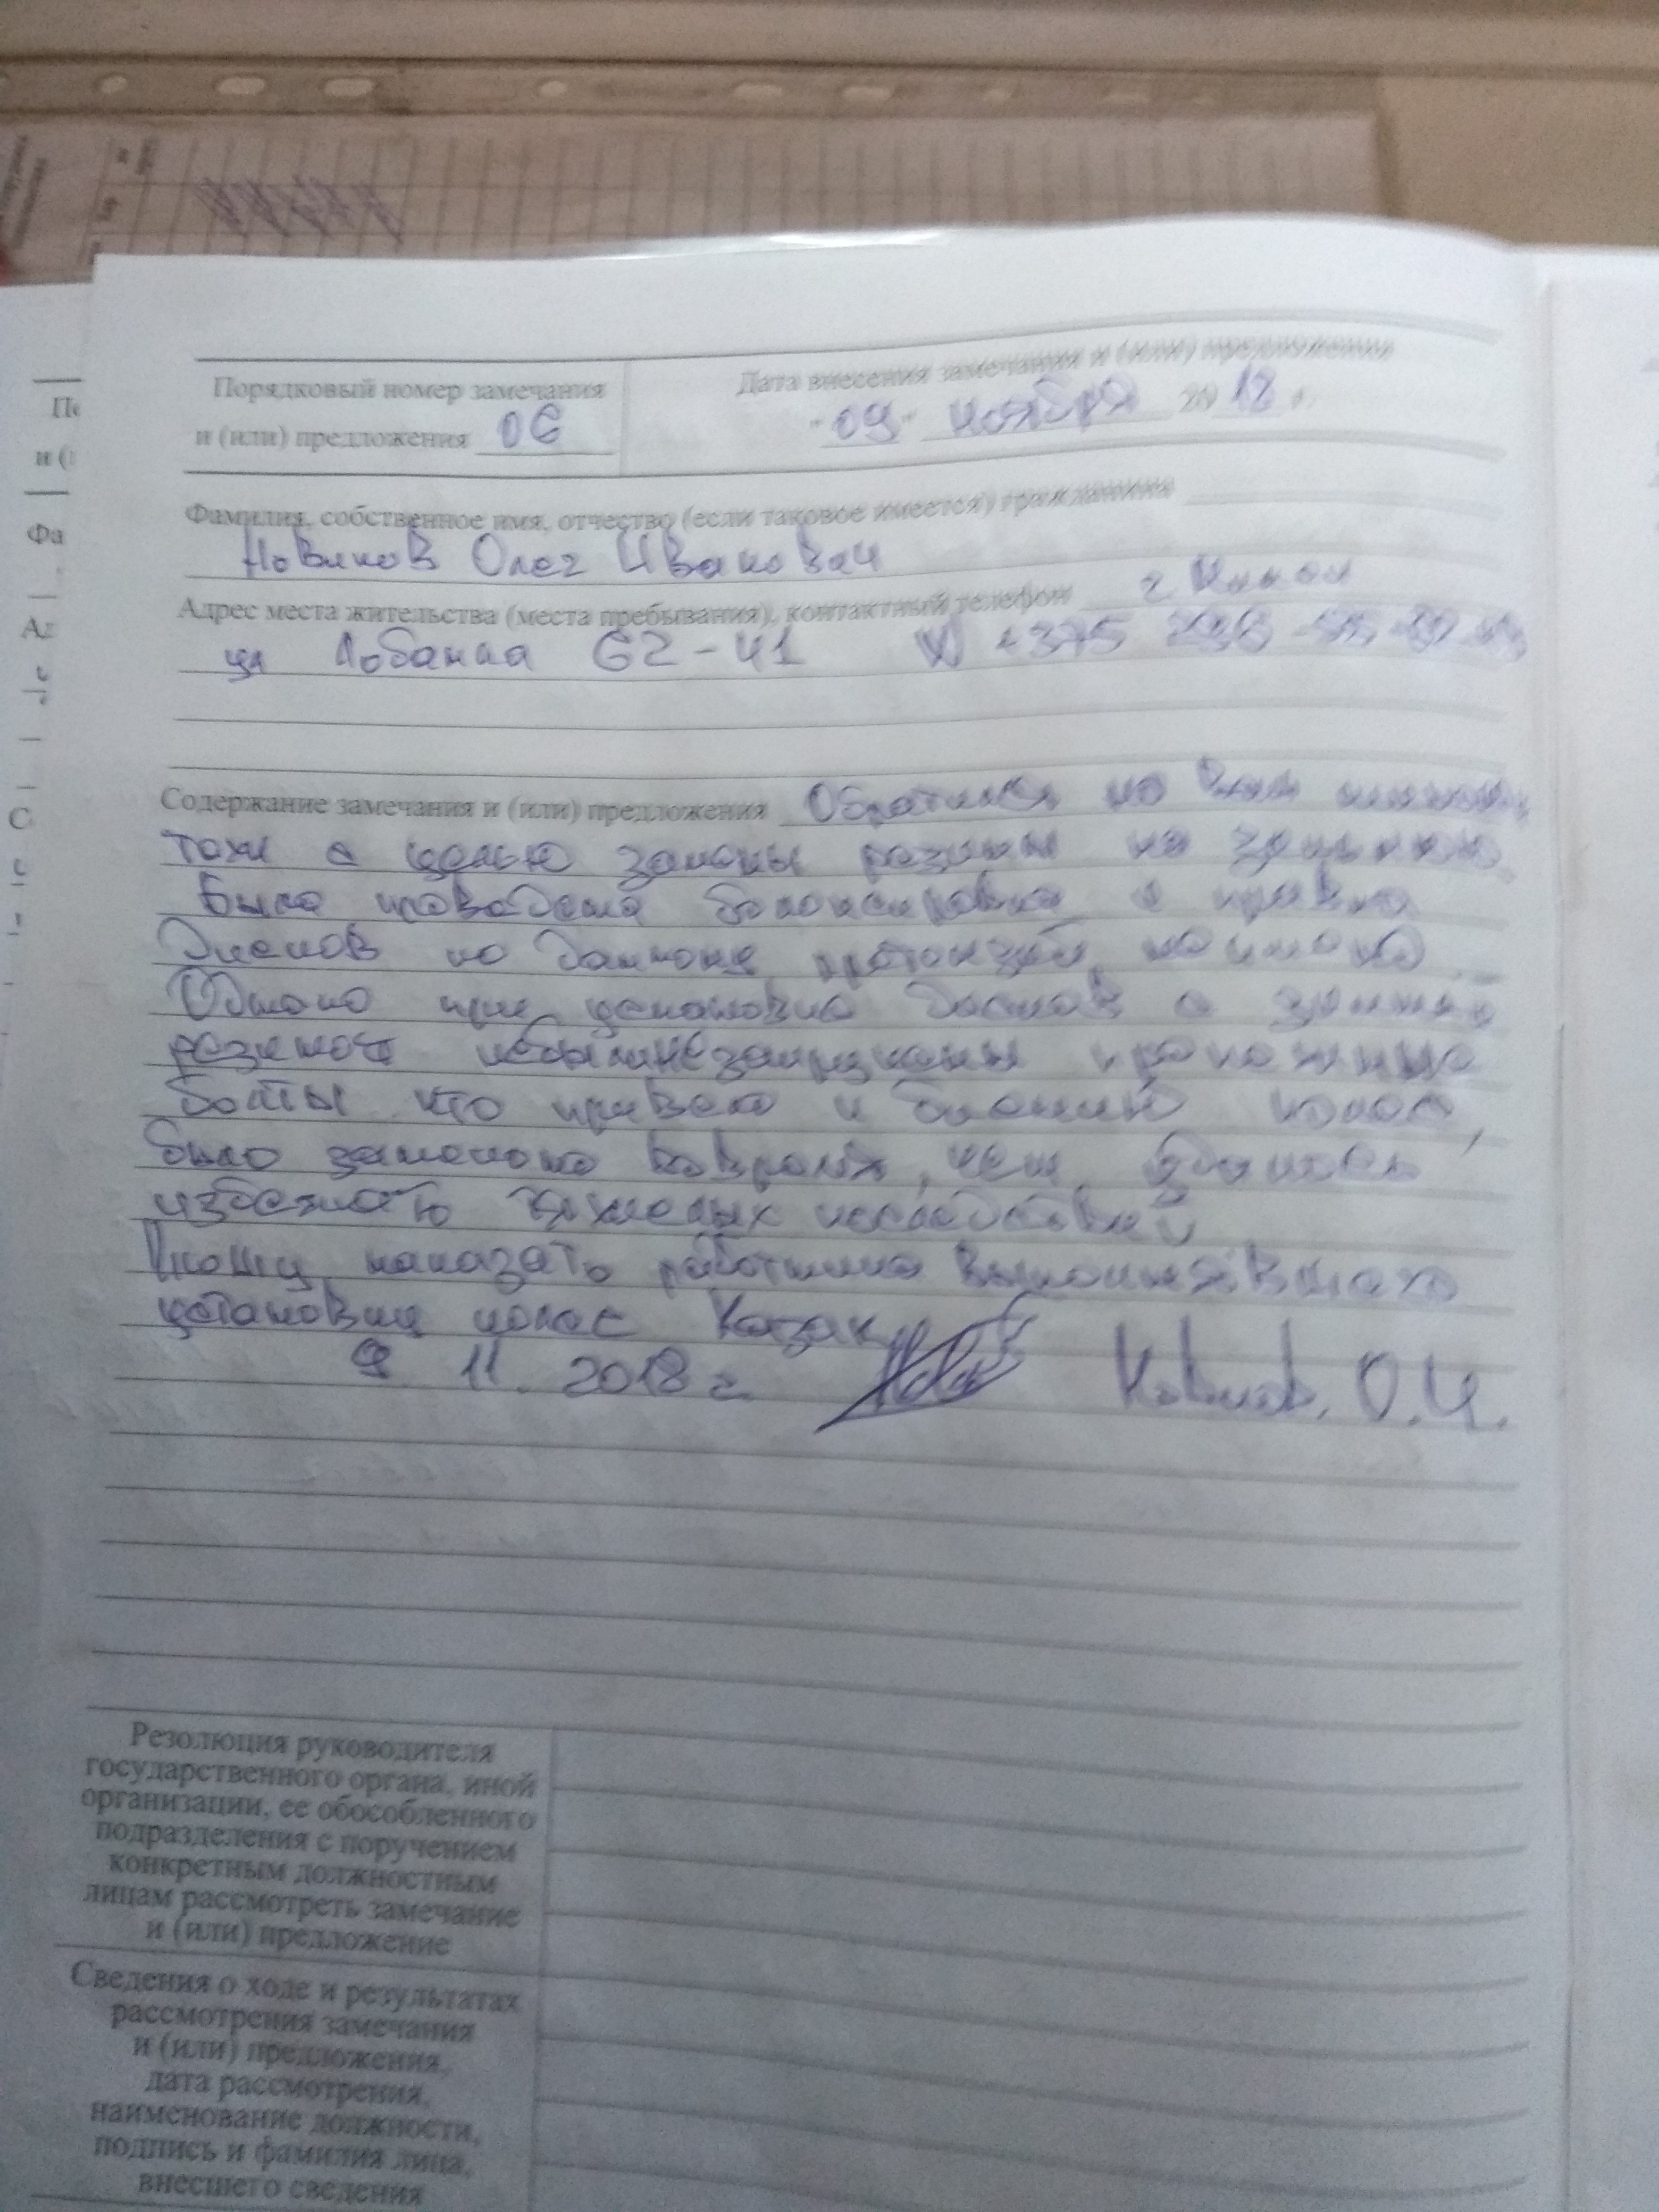 Порядковый номер замечания
и (или) предложения 06
Дата внесения замечания и (или) предложения
"09" ноября 2018 г.
Фамилия, собственное имя, отчество (если таковое имеется) гражданина
Новиков Олег Иванович
Адрес места жительства (места пребывания), контактный телефон г. Минск
ул Лобанка 62-41 +375
Содержание замечания и (или) предложения Обратился на Ваш
с целью замены резины на зимнюю.
Была проведена балансировка и правка
дисков по данному претензий не имею
Однако при установке дисков с зимней
резиной небыли
болты что привело к биению колес,
было замечено вовремя, чем удалось
избежать тяжелых последствий
Прошу наказать работника выполнявшего
установку колес Казак
9. 11. 2018 г. Новиков. О.И.
Резолюция руководителя
государственного органа, иной
организации, ее обособленного
подразделения с поручением
конкретным должностным
лицам рассмотреть замечание
и (или) предложение
Сведения о ходе и результатах
рассмотрения замечания
и (или) предложения,
дата рассмотрения,
наименование должности,
подпись и фамилия лица,
внесшего сведения